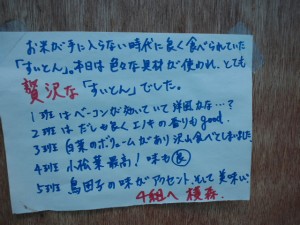 お米が手に入らない時代に良く食べられていた
「すいとん」。本日は色々な具材が使われ、とても
贅沢な「すいとん」でした。
1班はベーコンが効いていて洋風かな…?
2班はだしも良くエノキの香りもgood.
3班 白菜のボリュームがあり沢山食べてしまいました
4班 小松菜最高！味も良
5班 鳥団子の味がアクセント、そして美味しい
4組へ 榎森